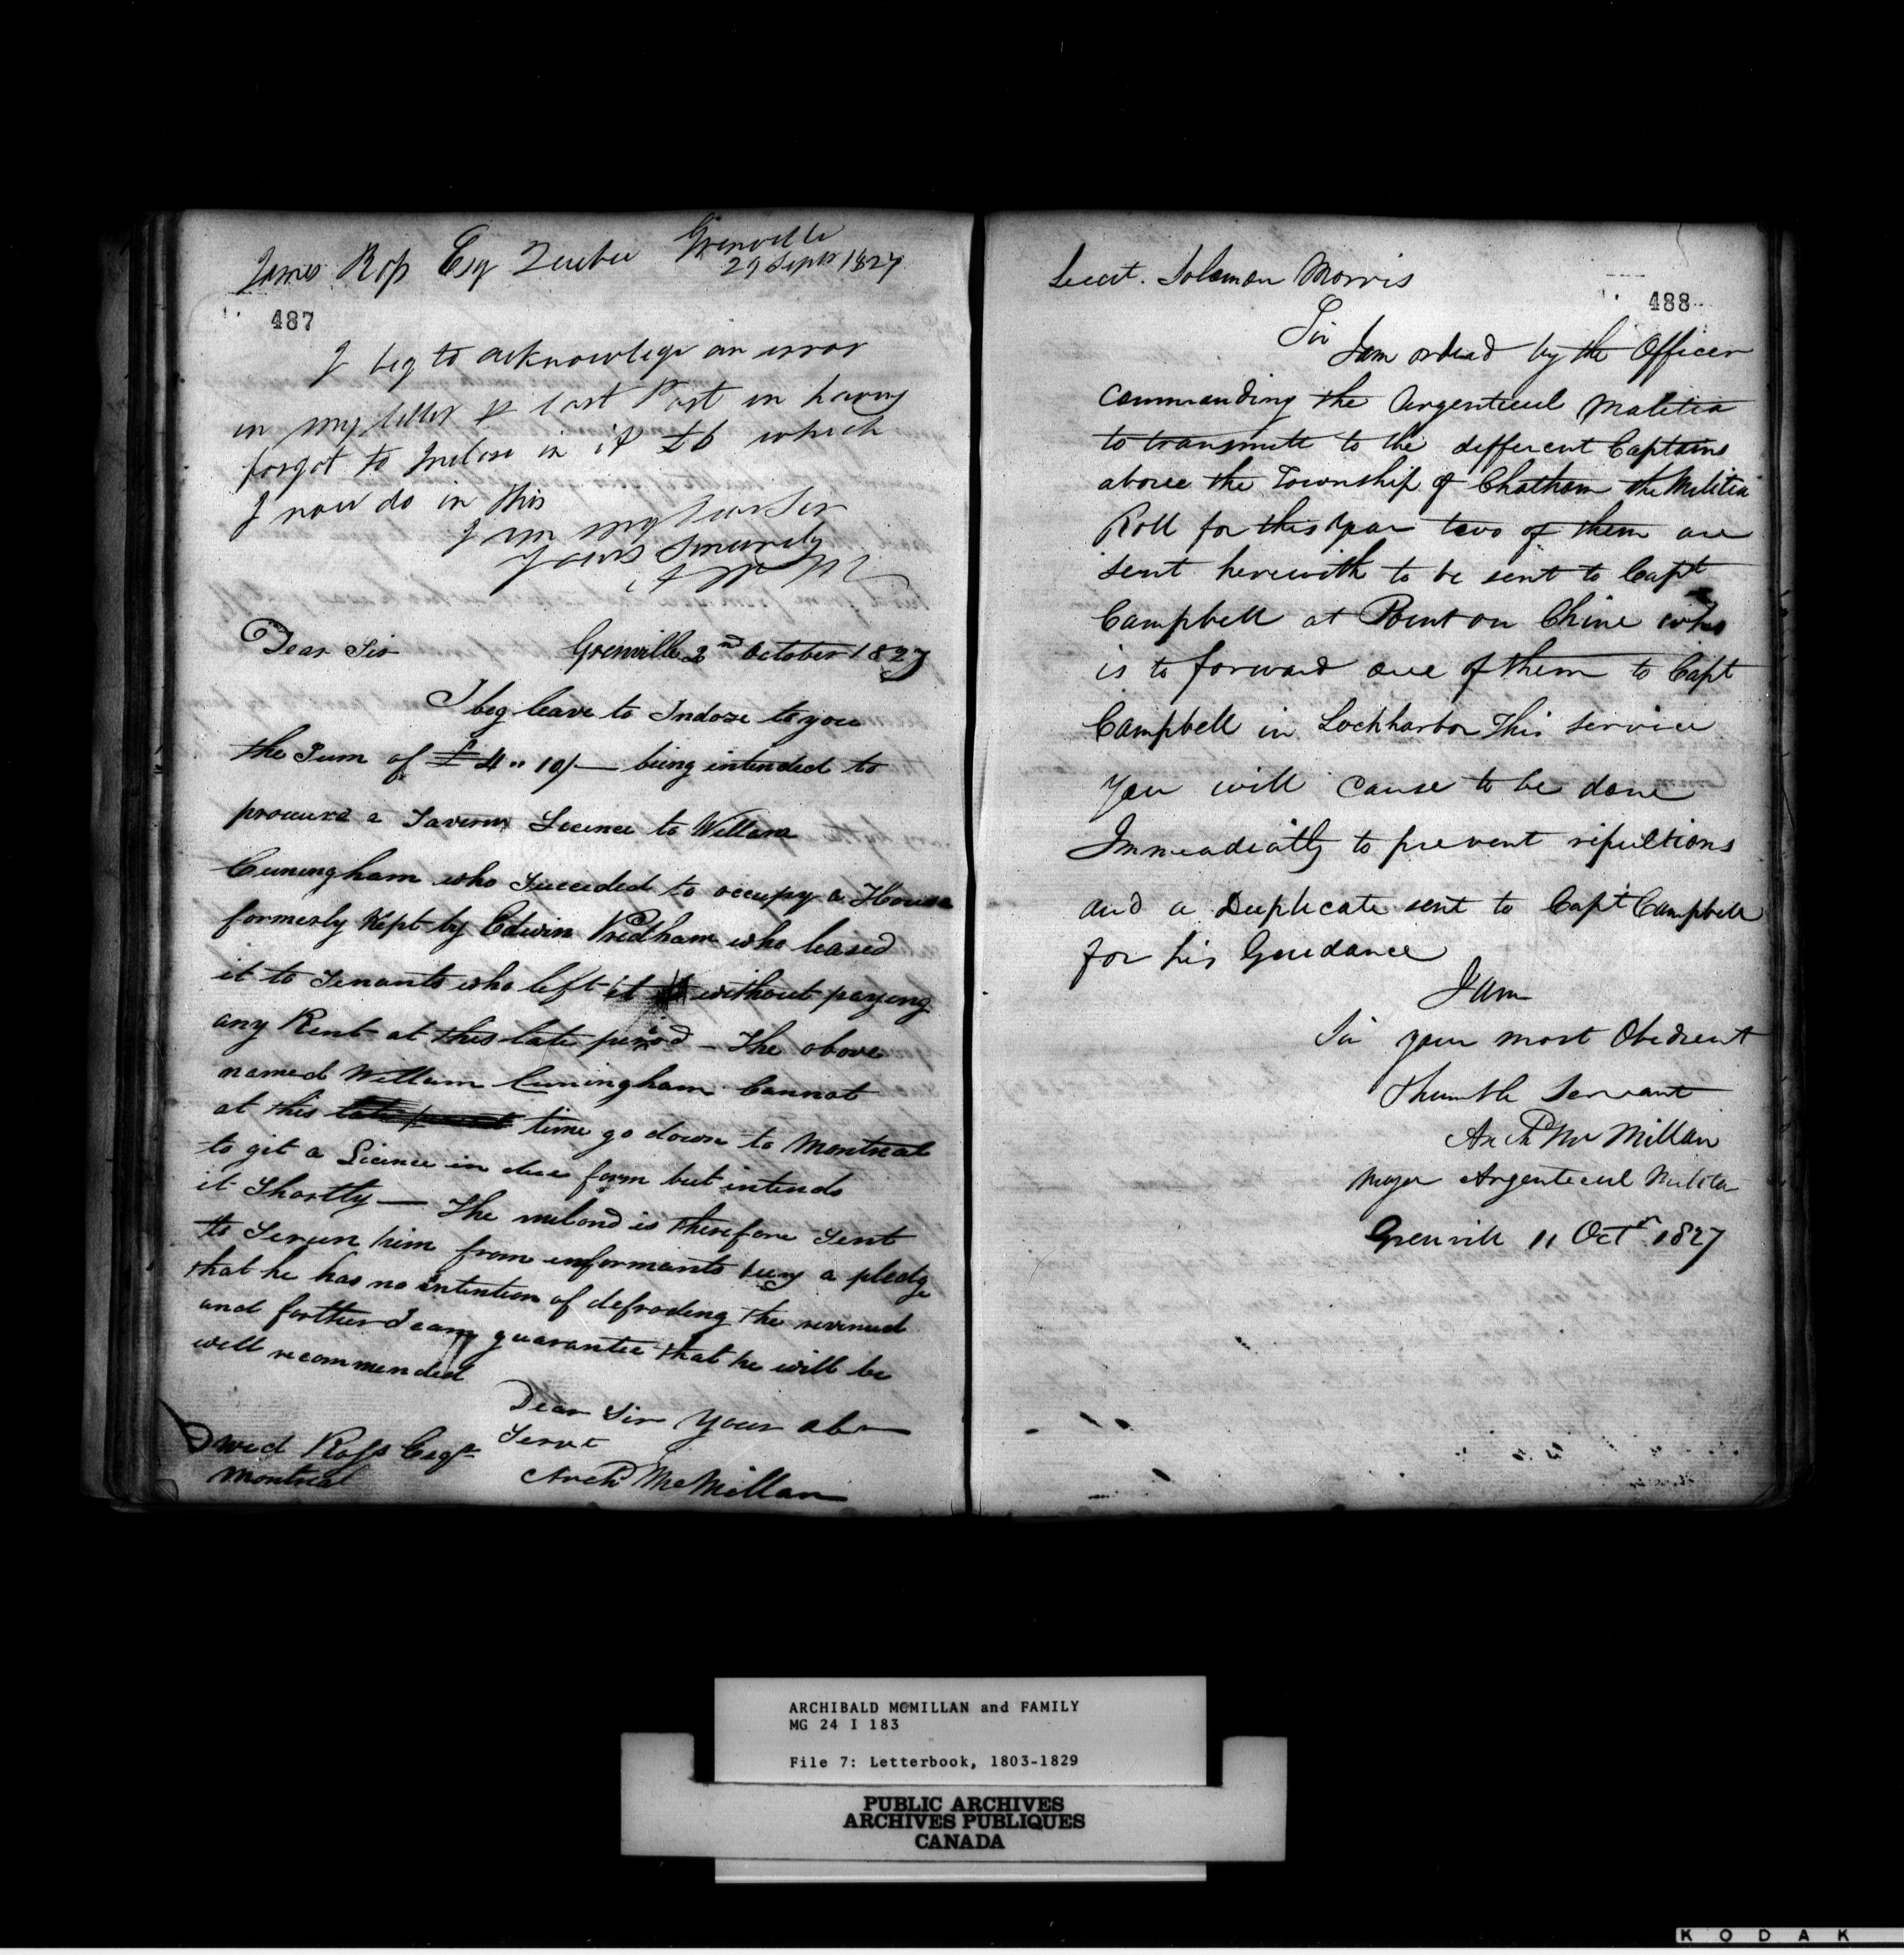 Grenville
James Ross Esq Quebec 29 Septr 1827
487
I beg to acknowlege an error
in my letter last Post in having
forgot to Inclose in it £6 which
I now do in this
I am my Dear Sir
Yours Sincerely
A McM
Dear Sir Grenville 2nd October 1827
I beg leave to Indose to you
the Sum of £4 " 10/— being intended to
procure a Tavern Licence to Willam
Cuningham who Succeded to occupy a House
formerly Kept by Edwin Pridham who leased
it to Tenants who left it without paying
any Rent at this late period — The above
named Willam Cuningham Cannot
at this late period time go down to Montreal
to git a Licence in due form but intends
it Shortly — The is therefore Sent
to Screen him from informants being a pledge
that he has no intention of defroding the revenue
and farther I can guarantee that he will be
well recommended
Dear Sir your obn
Servt
David Ross Esqr
Montreal
Archd McMillan
Lieut. Solomon Morris
488
Sir
I am ordead by the Officer
Commanding the Argenteuil Malitia
to transmitt to the different Captains
above the Township of Chatham the Militia
Roll for this year two of them are
sent herewith to be sent to Capt
Campbell at Point ou Chine who
is to forward one of them to Capt
Campbell in Lochharbor This Service
you will cause to be done
Immeadiatly to prevent
and a Duplicate sent to Capt Campbell
for his Guidance
I am
Sir your most Obedient
Humble Servant
Archd Mc Millan
Major Argenteuil Militia
Grenvill 11 Octr 1827
ARCHIBALD McMILLAN and FAMILY
MG 24 I 183
File 7: Letterbook, 1803-1829
PUBLIC ARCHIVES
ARCHIVES PUBLIQUES
CANADA
KODAK